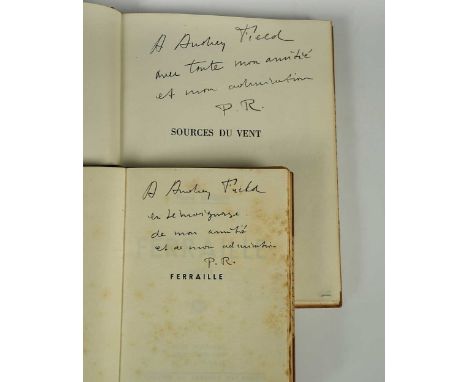 A Audrey Field
avec toute mon amitié
et mon admiration
P. R.
SOURCES DU VENT
A Audrey Field
en témoignage
de mon amitié
et de mon admiration
P. R.
FERRAILLE